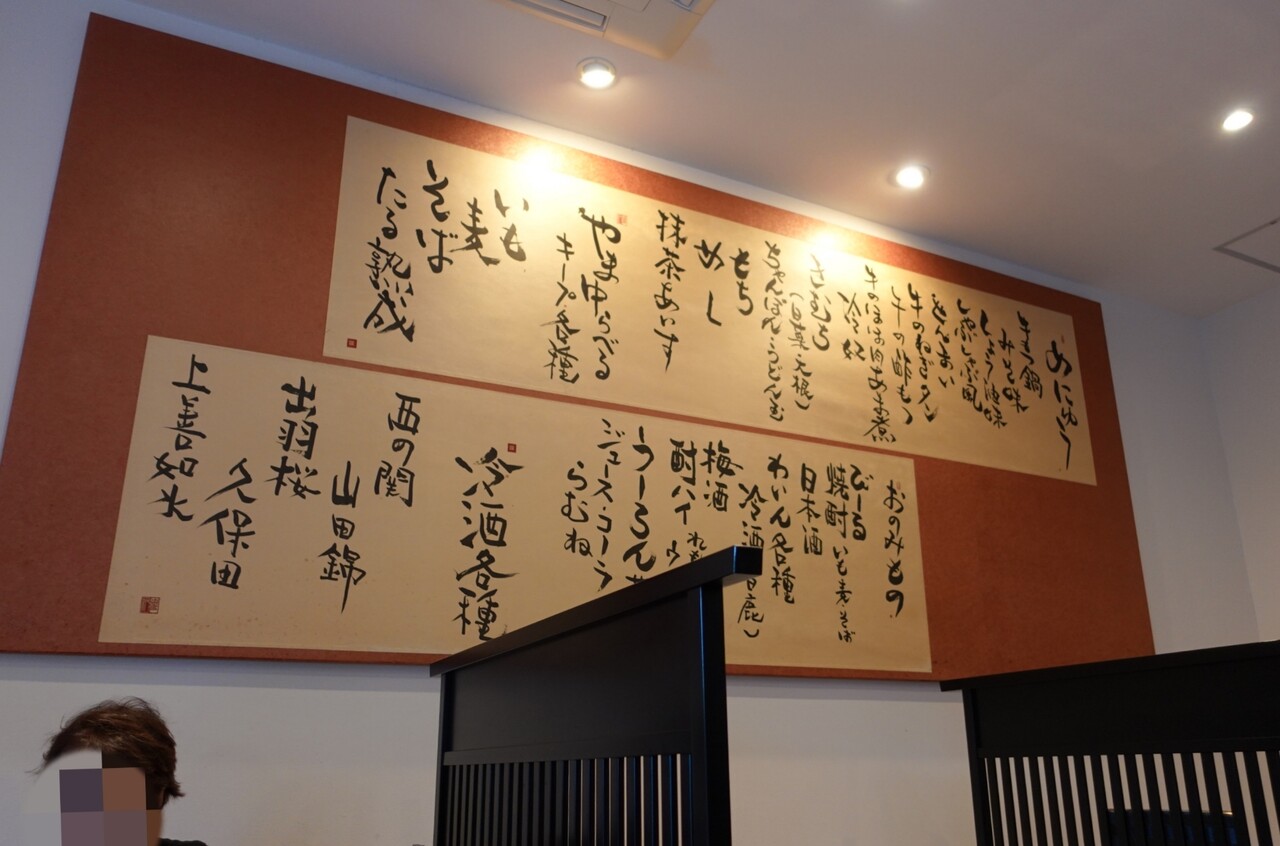 めにゅう
もつ鍋
みそ味
しょうゆ味
しゃぶしゃぶ風
牛の酢もつ
牛のほほ肉あま煮
冷奴
きむち
(白菜・大根)
ちゃんぽん・うどん玉
もち
めし
抹茶あいす
やまゆらべる
キープ各種
いも
麦
そば
たる熟成
おのみもの
びーる
焼酎 いも・麦・そば
日本酒
わいん各種
冷酒
梅酒
酎ハイ
うーろん
ジュース・コーラ
らむね
冷酒各種
西の関
山田錦
出羽桜
久保田
上善如水